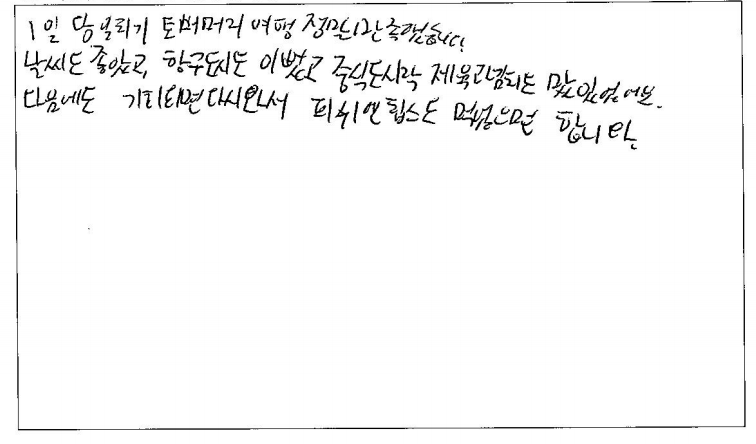 1일 당일치기 토버머리 여행 정말 즐거웠습니다.
날씨도 좋았고, 항구도시도 이뻤고 중식도시락 제육 도 맛있었어요.
다음에도 기회되면 다시와서 피쉬앤칩스도 먹었으면 합니다.